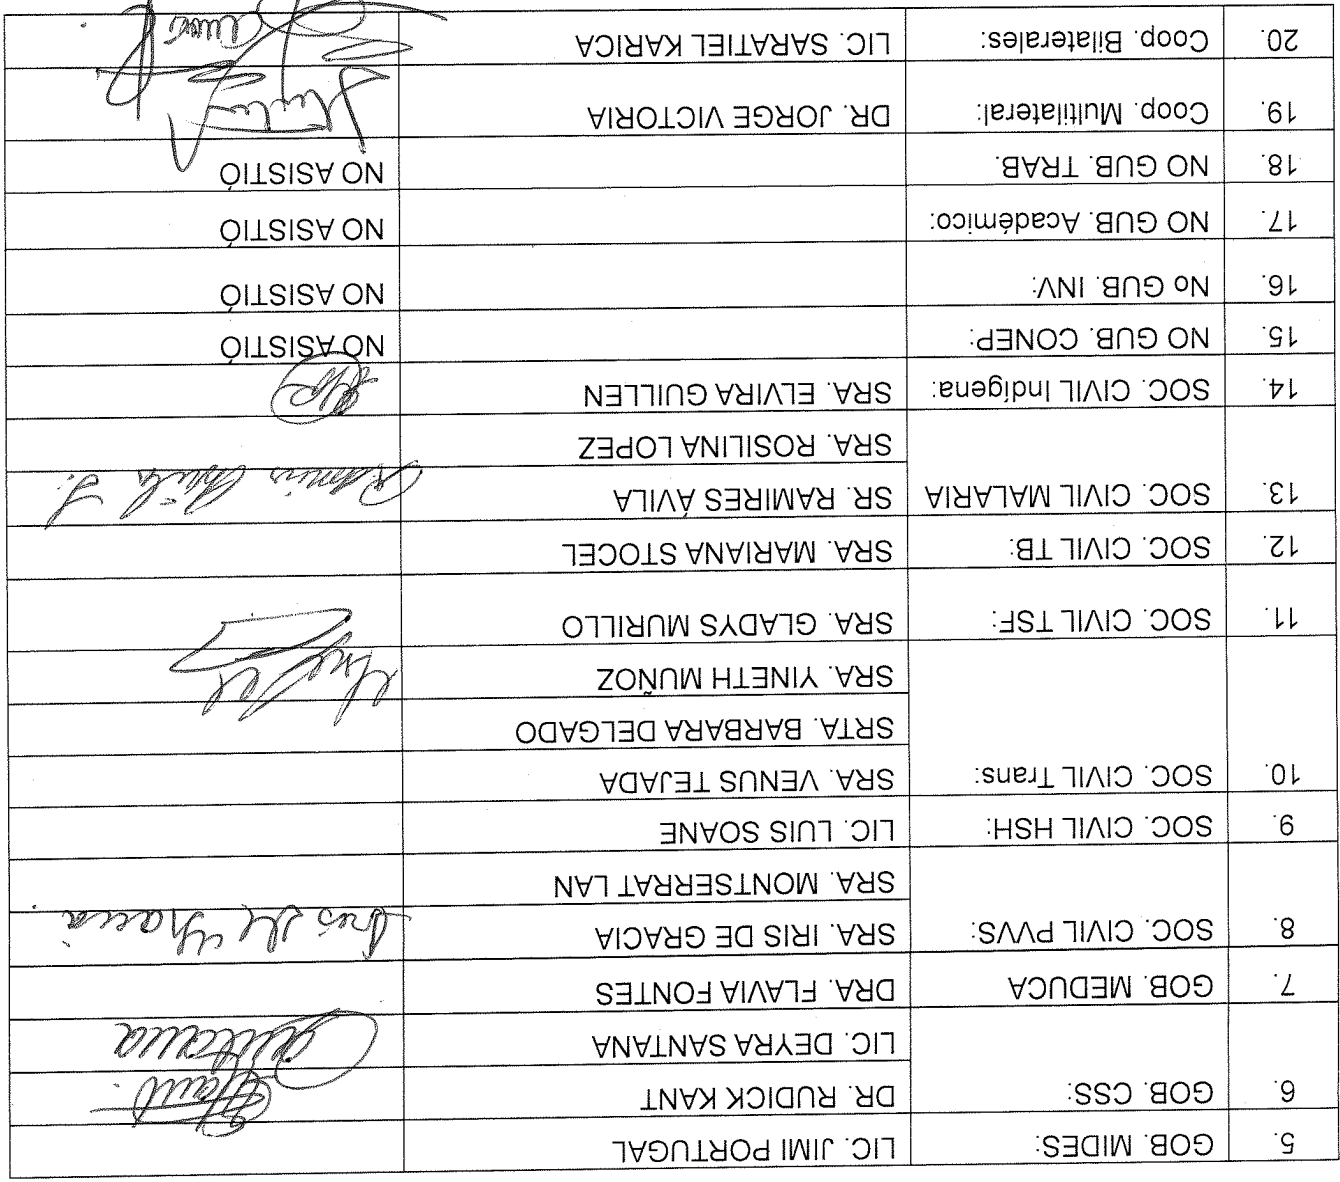 5. GOB. MIDES: LIC. JIMI PORTUGAL
6. GOB. CSS: DR. RUDICK KANT Kant
LIC. DEYRA SANTANA Santana
7. GOB. MEDUCA DRA. FLAVIA FONTES
8. SOC. CIVIL PVVS: SRA. IRIS DE GRACIA Iris de Gracia
SRA. MONTSERRAT LAN
9. SOC. CIVIL HSH: LIC. LUIS SOANE
10. SOC. CIVIL Trans: SRA. VENUS TEJADA
SRTA. BARBARA DELGADO
SRA. YINETH MUÑOZ
11. SOC. CIVIL TSF: SRA. GLADYS MURILLO
12. SOC. CIVIL TB: SRA. MARIANA STOCEL
13. SOC. CIVIL MALARIA SR. RAMIRES ÁVILA
SRA. ROSILINA LOPEZ
14. SOC. CIVIL Indígena: SRA. ELVIRA GUILLEN
15. NO GUB. CONEP: NO ASISTIÓ
16. No GUB. INV: NO ASISTIÓ
17. NO GUB. Académico: NO ASISTIÓ
18. NO GUB. TRAB. NO ASISTIÓ
19. Coop. Multilateral: DR. JORGE VICTORIA
20. Coop. Bilaterales: LIC. SARATIEL KARICA